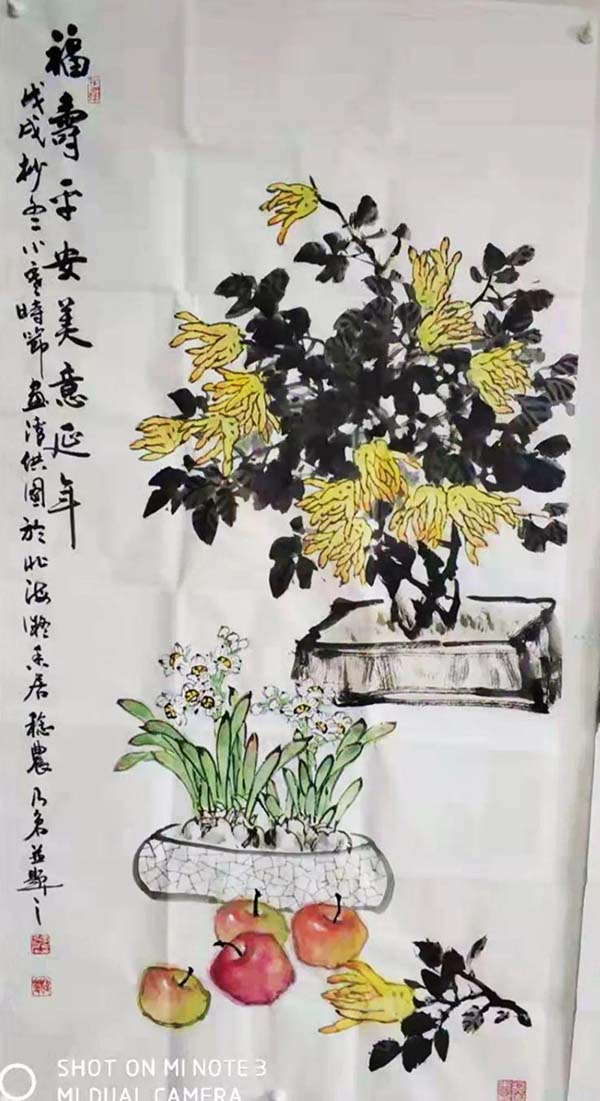 福寿平安美意延年
戊戌杪冬小寒時節画清供图於北海凝香居稔農乃泉並題之
SHOT ON MI NOTE 3
MI DUAL CAMERA